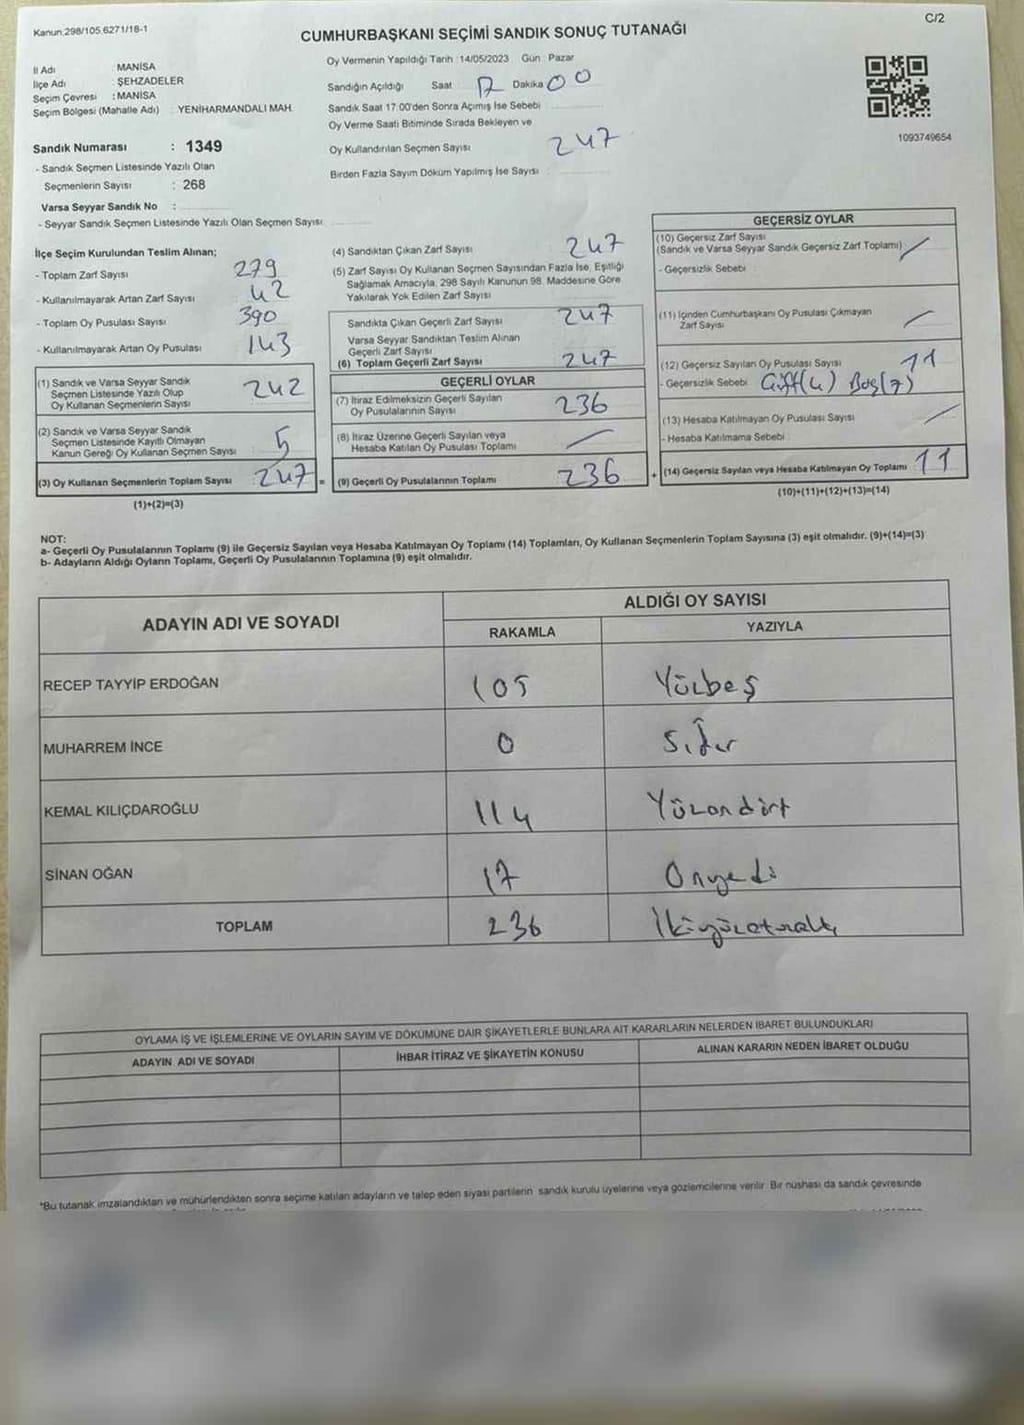 Kanun:298/105,6271/18-1
C/2
CUMHURBAŞKANI SEÇİMİ SANDIK SONUÇ TUTANAĞI
İl Adı : MANİSA
İlçe Adı : ŞEHZADELER
Seçim Çevresi : MANİSA
Seçim Bölgesi (Mahalle Adı) : YENİHARMANDALI MAH.
Sandık Numarası : 1349
- Sandık Seçmen Listesinde Yazılı Olan
Seçmenlerin Sayısı : 268
Varsa Seyyar Sandık No :
- Seyyar Sandık Seçmen Listesinde Yazılı Olan Seçmen Sayısı
Oy Vermenin Yapıldığı Tarih :14/05/2023 Gün : Pazar
Sandığın Açıldığı Saat 17 Dakika 00
Sandık Saat 17:00'den Sonra Açımış İse Sebebi
Oy Verme Saati Bitiminde Sırada Bekleyen ve
Oy Kullandırılan Seçmen Sayısı 247
Birden Fazla Sayım Döküm Yapılmış İse Sayısı :
1093749654
İlçe Seçim Kurulundan Teslim Alınan;
- Toplam Zarf Sayısı 279
- Kullanılmayarak Artan Zarf Sayısı 42
- Toplam Oy Pusulası Sayısı 390
- Kullanılmayarak Artan Oy Pusulası 143
(1) Sandık ve Varsa Seyyar Sandık
Seçmen Listesinde Yazılı Olup
Oy Kullanan Seçmenlerin Sayısı 242
(2) Sandık ve Varsa Seyyar Sandık
Seçmen Listesinde Kayıtlı Olmayan
Kanun Gereği Oy Kullanan Seçmen Sayısı 5
(3) Oy Kullanan Seçmenlerin Toplam Sayısı 247 =
(1)+(2)=(3)
(4) Sandıktan Çıkan Zarf Sayısı 247
(5) Zarf Sayısı Oy Kullanan Seçmen Sayısından Fazla İse, Eşitliği
Sağlamak Amacıyla, 298 Sayılı Kanunun 98. Maddesine Göre
Yakılarak Yok Edilen Zarf Sayısı
Sandıkta Çıkan Geçerli Zarf Sayısı 247
Varsa Seyyar Sandıktan Teslim Alınan
Geçerli Zarf Sayısı
(6) Toplam Geçerli Zarf Sayısı 247
GEÇERLİ OYLAR
(7) İtiraz Edilmeksizin Geçerli Sayılan
Oy Pusulalarının Sayısı 236
(8) İtiraz Üzerine Geçerli Sayılan veya
Hesaba Katılan Oy Pusulası Toplamı
(9) Geçerli Oy Pusulalarının Toplamı 236 +
GEÇERSİZ OYLAR
(10) Geçersiz Zarf Sayısı
(Sandık ve Varsa Seyyar Sandık Geçersiz Zarf Toplamı)
- Geçersizlik Sebebi
(11) İçinden Cumhurbaşkanı Oy Pusulası Çıkmayan
Zarf Sayısı
(12) Geçersiz Sayılan Oy Pusulası Sayısı 11
- Geçersizlik Sebebi Çift(4) Boş(7)
(13) Hesaba Katılmayan Oy Pusulası Sayısı
- Hesaba Katılmama Sebebi
(14) Geçersiz Sayılan veya Hesaba Katılmayan Oy Toplamı 11
(10)+(11)+(12)+(13)=(14)
NOT:
a- Geçerli Oy Pusulalarının Toplamı (9) ile Geçersiz Sayılan veya Hesaba Katılmayan Oy Toplamı (14) Toplamları, Oy Kullanan Seçmenlerin Toplam Sayısına (3) eşit olmalıdır. (9)+(14)=(3)
b- Adayların Aldığı Oyların Toplamı, Geçerli Oy Pusulalarının Toplamına (9) eşit olmalıdır.
ADAYIN ADI VE SOYADI
ALDIĞI OY SAYISI
RAKAMLA YAZIYLA
RECEP TAYYİP ERDOĞAN 105 Yüzbeş
MUHARREM İNCE 0 Sıfır
KEMAL KILIÇDAROĞLU 114 Yüzondört
SİNAN OĞAN 17 Onyedi
TOPLAM 236 İkiyüzotuzaltı
OYLAMA İŞ VE İŞLEMLERİNE VE OYLARIN SAYIM VE DÖKÜMÜNE DAİR ŞİKAYETLERLE BUNLARA AİT KARARLARIN NELERDEN İBARET BULUNDUKLARI
ADAYIN ADI VE SOYADI İHBAR İTİRAZ VE ŞİKAYETİN KONUSU ALINAN KARARIN NEDEN İBARET OLDUĞU
*Bu tutanak imzalandıktan ve mühürlendikten sonra seçime katılan adayların ve talep eden siyasi partilerin sandık kurulu üyelerine veya gözlemcilerine verilir. Bir nüshası da sandık çevresinde